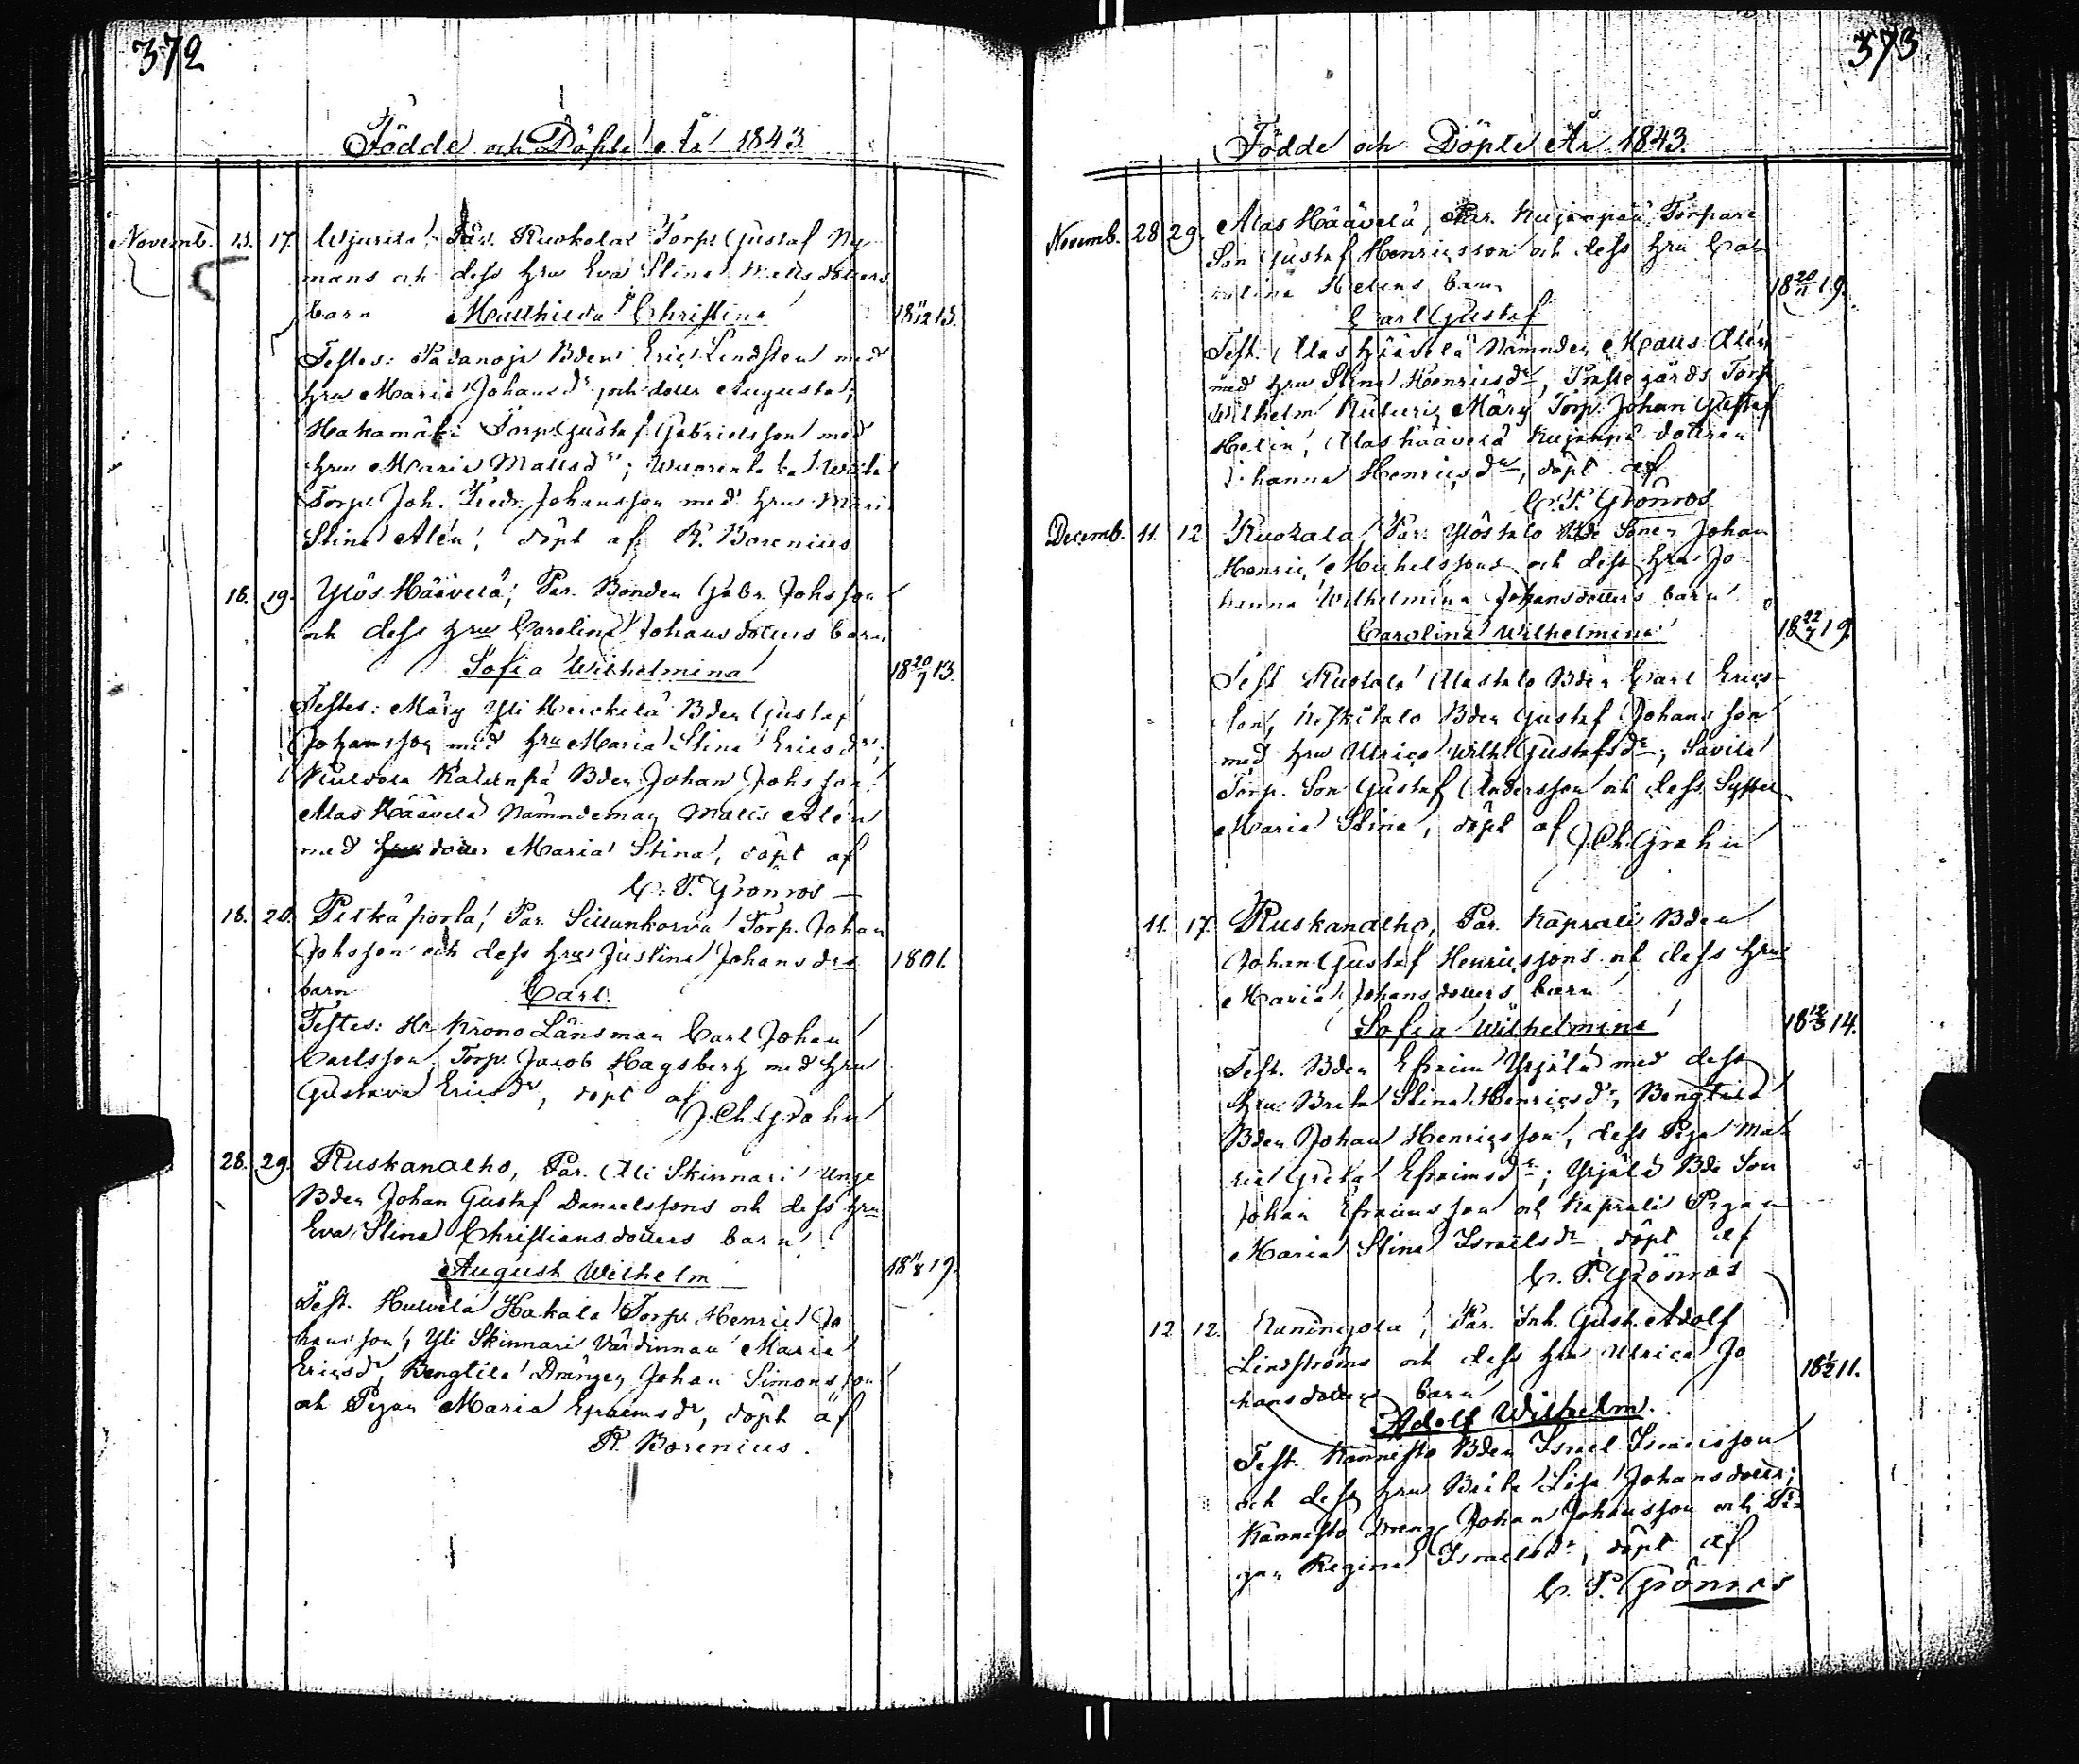 372
Födde och Döpte År 1843
Novemb. 15. 17. Wjurila, Par. Ruokolas Torp. Gustaf Ny
mans och dess hru Eva Stina Mattsdotters
barn Matthilda Christina 18 11/12 13.
Testes: Padanoja Bden Eric Lindsten med
hru Maria Johansdr, och dotter Augusta;
Hakamäki Torp. Gustaf Gabrielsson med
hru Maria Mattsdr;
Torp. Joh. Fredr. Johansson med hru Mari
Stina Alén, döpt af R. Borenius
16. 19. Ylös Häävelä; Par. Bonden Gabr. Johsson
och dess hru Carolina Johansdotters barn
Sofia Wilhelmina 18 20/9 13.
Testes: Märy Yli Heickilä Bden Gustaf
Johansson med hru Maria Stina Ericsdr;
Bden Johan Johsson
Alas Häävelä Nämndeman Matts Alén
med dotter Maria Stina, döpt af
C. P. Grönros
18. 20. Pitkäporla, Par. Sillankorva Torp. Johan
Johsson och dess hru Justina Johansdrs 1801.
barn Carl.
Testes: Hr Krono Länsman Carl Johan
Carlsson, Torp. Jacob Hagsberg med hru
Gustava Ericsdr, döpt af
J. Ch. Grahn
28. 29. Ruskanalho, Par. Ali Skinnari Unge
Bden Johan Gustaf Danielssons och dess hru
Eva Stina Christiansdotters barn
August Wilhelm 18 11/8 19.
Test. Hakala Torp. Henric Jo
hansson, Yli Skinnari Värdinnan Maria
Ericsdr, Bengtilä Drängen Johan Simonsson
och Pigan Maria Efraimsdr, döpt af
R. Borenius.
373
Födde och Döpte År 1843.
Novemb. 28 29. Alas Häävelä, Par. Kujanpää Torpare
Son Gustaf Henricsson och dess hru Ca
rolina Helens barn 18 20/11 19.
Carl Gustaf
Test. Alas Häävelä Nämnden Matts Alén
med hru Stina Henricsdr, Prestegårds Torp
Wilhelm Märy Torp. Johan Gustaf
Helin, Alas Häävelä Kujanpä dottren
Johanna Henricsdr, döpt af
C. P. Grönros
Decemb. 11. 12 Ruokala, Par. Ylöstalo Bde Sonen Johan
Henric Michelssons och dess hru Jo
hanna Wilhelmina Johansdotters barn
Carolina Wilhelmina 18 22/7 19.
Test Ruokala Alastalo Bden Carl Erics
son, Keskitalo Bden Gustaf Johansson
med hru Ulrica Wilh. Gustafsdr, Savila
Torp. Son Gustaf Andersson och dess Syster
Maria Stina, döpt af
J. Ch. Grahn
11. 17. Ruskanalho, Par. Käprali Bden
Johan Gustaf Henricssons och dess hru
Maria Johansdotters barn
Sofia Wilhelmina 18 12/3 14.
Test. Bden Efraim Yrjälä med dess
hru Brita Stina Henricsdr, Bengtilä
Bden Johan Henricsson, dess Piga Ma
ria Greta Efraimsdr; Yrjälä Bde Son
Johan Efraimsson och Käprali Pigan
Maria Stina Israelsdr, döpt af
C. P. Grönros
12 12. Par. Inh. Gust. Adolf
Lindströms och dess hru Ulrica Jo 18 1/2 11.
hansdotters barn
Adolf Wilhelm.
Test. Kännistö Bden Israel Israelsson
och dess hru Brita Lisa Johansdotter;
Kännistö Dreng Johan Johansson och Pi
gan Regina Israelsdr, döpt af
C. P. Grönros